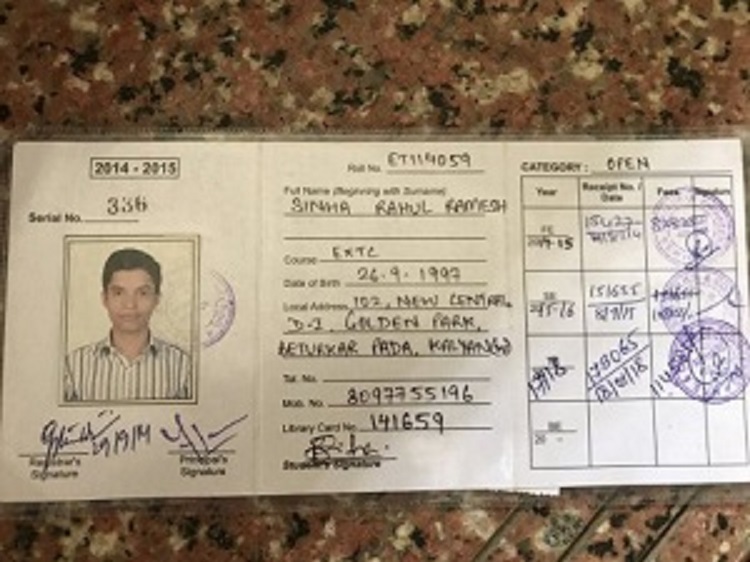 2014 - 2015
Serial No. 336
Registrar's
Signature
Principal's
Signature
Roll No. ET114059
Full Name (Beginning with Surname)
SINHA RAHUL RAMESH
Course EXTC
Date of Birth 26-9-1997
Local Address 102, NEW CENTRAL
D-2, GOLDEN PARK,
BETURKAR PADA, KALYAN(W)
Tel. No.
Mob. No. 8097755196
Library Card No. 141659
Student's Signature
CATEGORY : OPEN
Year Receipt No. / Date Fees Signature
15427
151655
8/7/15
17/18 178065
20 -